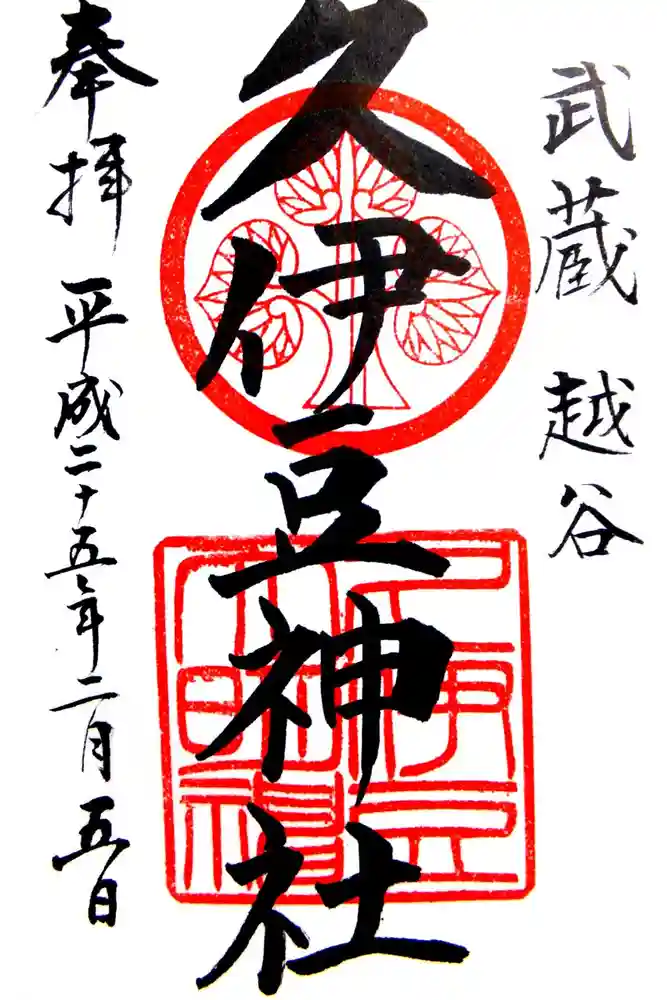 武蔵 越谷
久伊豆神社
奉拝 平成二十五年二月五日